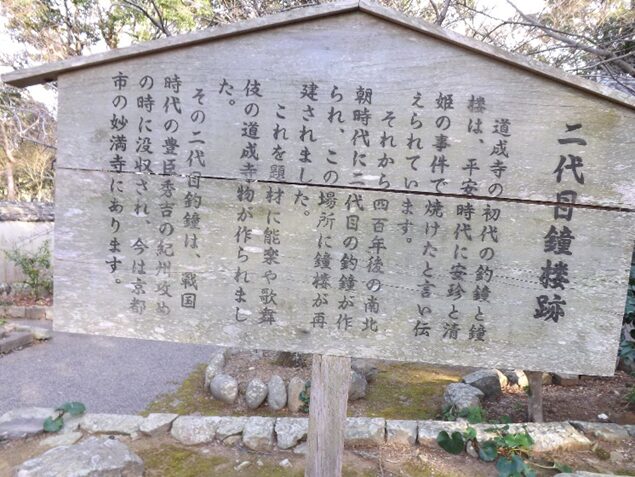 二代目鐘楼跡
道成寺の初代の釣鐘と鐘
楼は、平安時代に安珍と清
姫の事件で焼けたと言い伝
えられています。
それから四百年後の南北
朝時代に二代目の釣鐘が作
られ、この場所に鐘楼が再
建されました。
これを題材に能楽や歌舞
伎の道成寺物が作られまし
た。
その二代目釣鐘は、戦国
時代の豊臣秀吉の紀州攻め
の時に没収され、今は京都
市の妙満寺にあります。